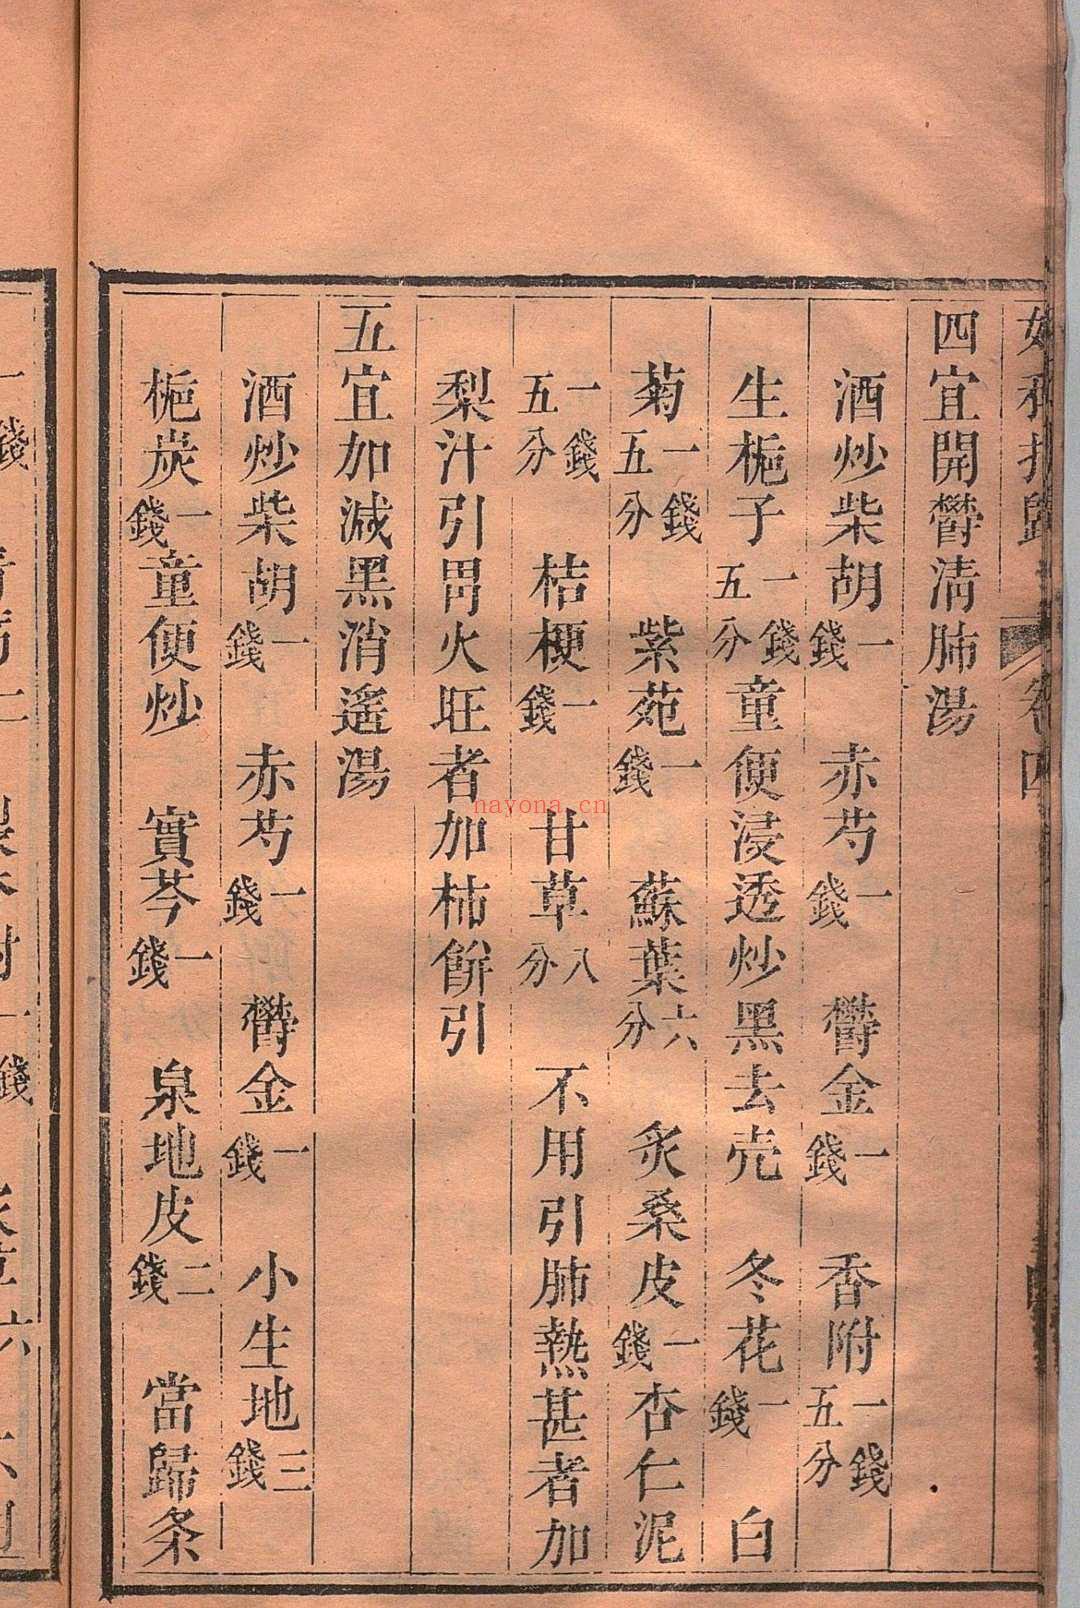 四宜開鬱清肺湯
酒炒柴胡一錢 赤芍一錢 鬱金一錢 香附一錢五分
生梔子一錢五分童便浸透炒黑去壳 冬花一錢 白
菊一錢五分 紫苑一錢 蘇葉六分 炙桑皮一錢杏仁泥
一錢五分 桔梗一錢 甘草八分 不用引肺熱甚者加
梨汁引胃火旺者加柿餅引
五宜加減黑消遙湯
酒炒柴胡一錢 赤芍一錢 鬱金一錢 小生地三錢
梔炭一錢童便炒 實芩一錢 泉地皮二錢 當歸条
nayona.cn